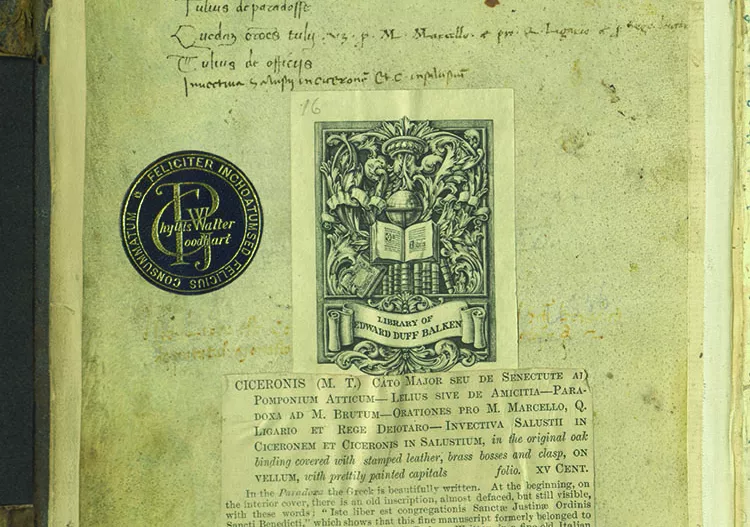 Tulius de paradosse
Quedam orões tulij. vz. p. M. Marcello. & pro. Q. Ligario &
Tulius de officijs
Invectiva Salustij in ciceronē Et. C. in salustiū
16
FELICITER INCHOATUM SED FELICIUS CONSUMMATUM
Phyllis Walter
Goodhart
LIBRARY OF
EDWARD DUFF BALKEN
CICERONIS (M. T.) CATO MAJOR SEU DE SENECTUTE AD
POMPONIUM ATTICUM—LELIUS SIVE DE AMICITIA—PARA-
DOXA AD M. BRUTUM—ORATIONES PRO M. MARCELLO, Q.
LIGARIO ET REGE DEIOTARO—INVECTIVA SALUSTII IN
CICERONEM ET CICERONIS IN SALUSTIUM, in the original oak
binding covered with stamped leather, brass bosses and clasp, ON
VELLUM, with prettily painted capitals folio. XV CENT.
In the Paradoxa the Greek is beautifully written. At the beginning, on
the interior cover, there is an old inscription, almost defaced, but still visible,
with these words: "Iste liber est congregationis Sanctæ Justinæ Ordinis
Sancti Benedicti," which shows that this fine manuscript formerly belonged to